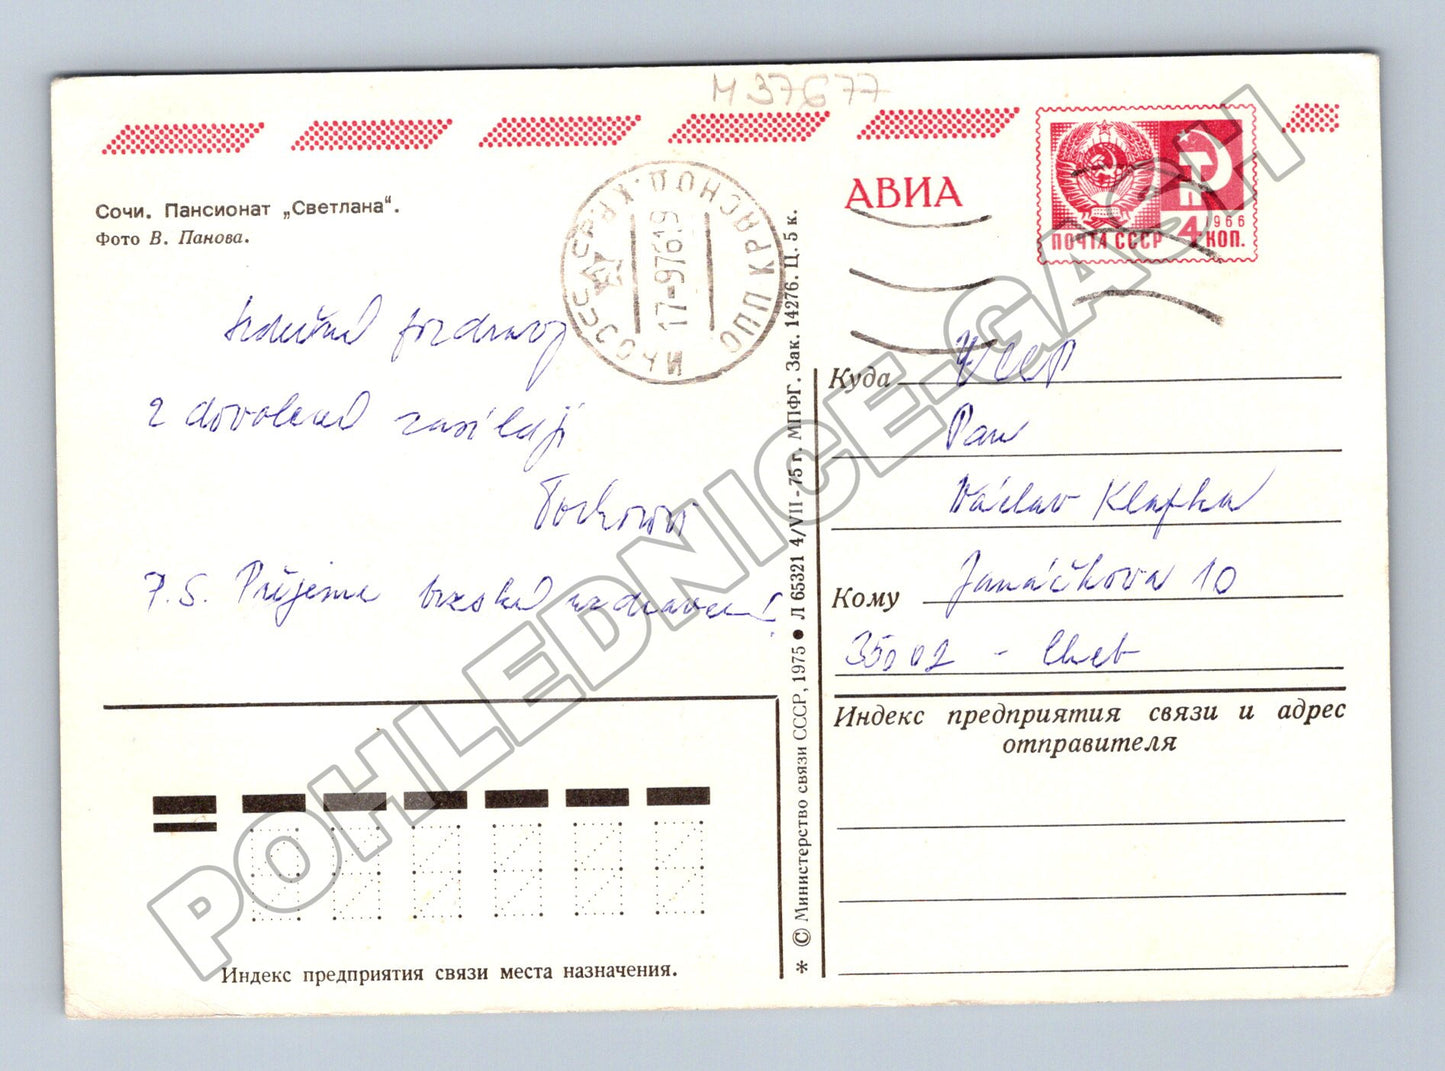 М 37677
АВИА
1966
4 КОП.
ПОЧТА СССР
Сочи. Пансионат „Светлана“.
Фото В. Панова.
КРАСНОД. КР.
17-9761.9
Srdečné pozdravy
z dovolené zasílají
P.S. Přejeme brzské uzdravení!
Куда ČSSR
Pan
Václav Klapka
Кому Janáčkova 10
35002 - Cheb
Индекс предприятия связи и адрес
отправителя
Индекс предприятия связи места назначения.
* © Министерство связи СССР, 1975 ● Л 65321 4/VII-75 г. МПФГ. Зак. 14276. Ц. 5 к.
POHLEDNICE-GASH